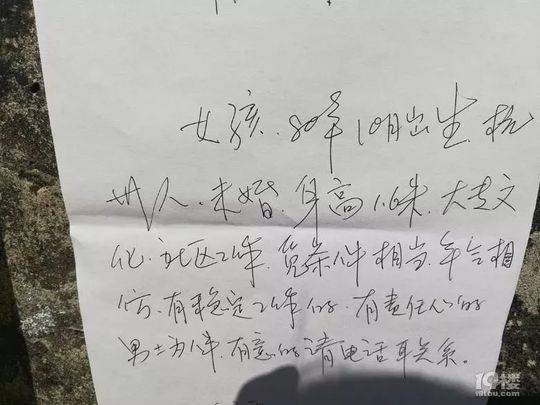 女孩.80年10月出生.杭
州人.未婚.身高1.6米.大专文
化.社区工作.觅条件相当.年令相
仿.有稳定工作的.有责任心的
男士为伴.有意的请电话联系。
19楼
19lou.com